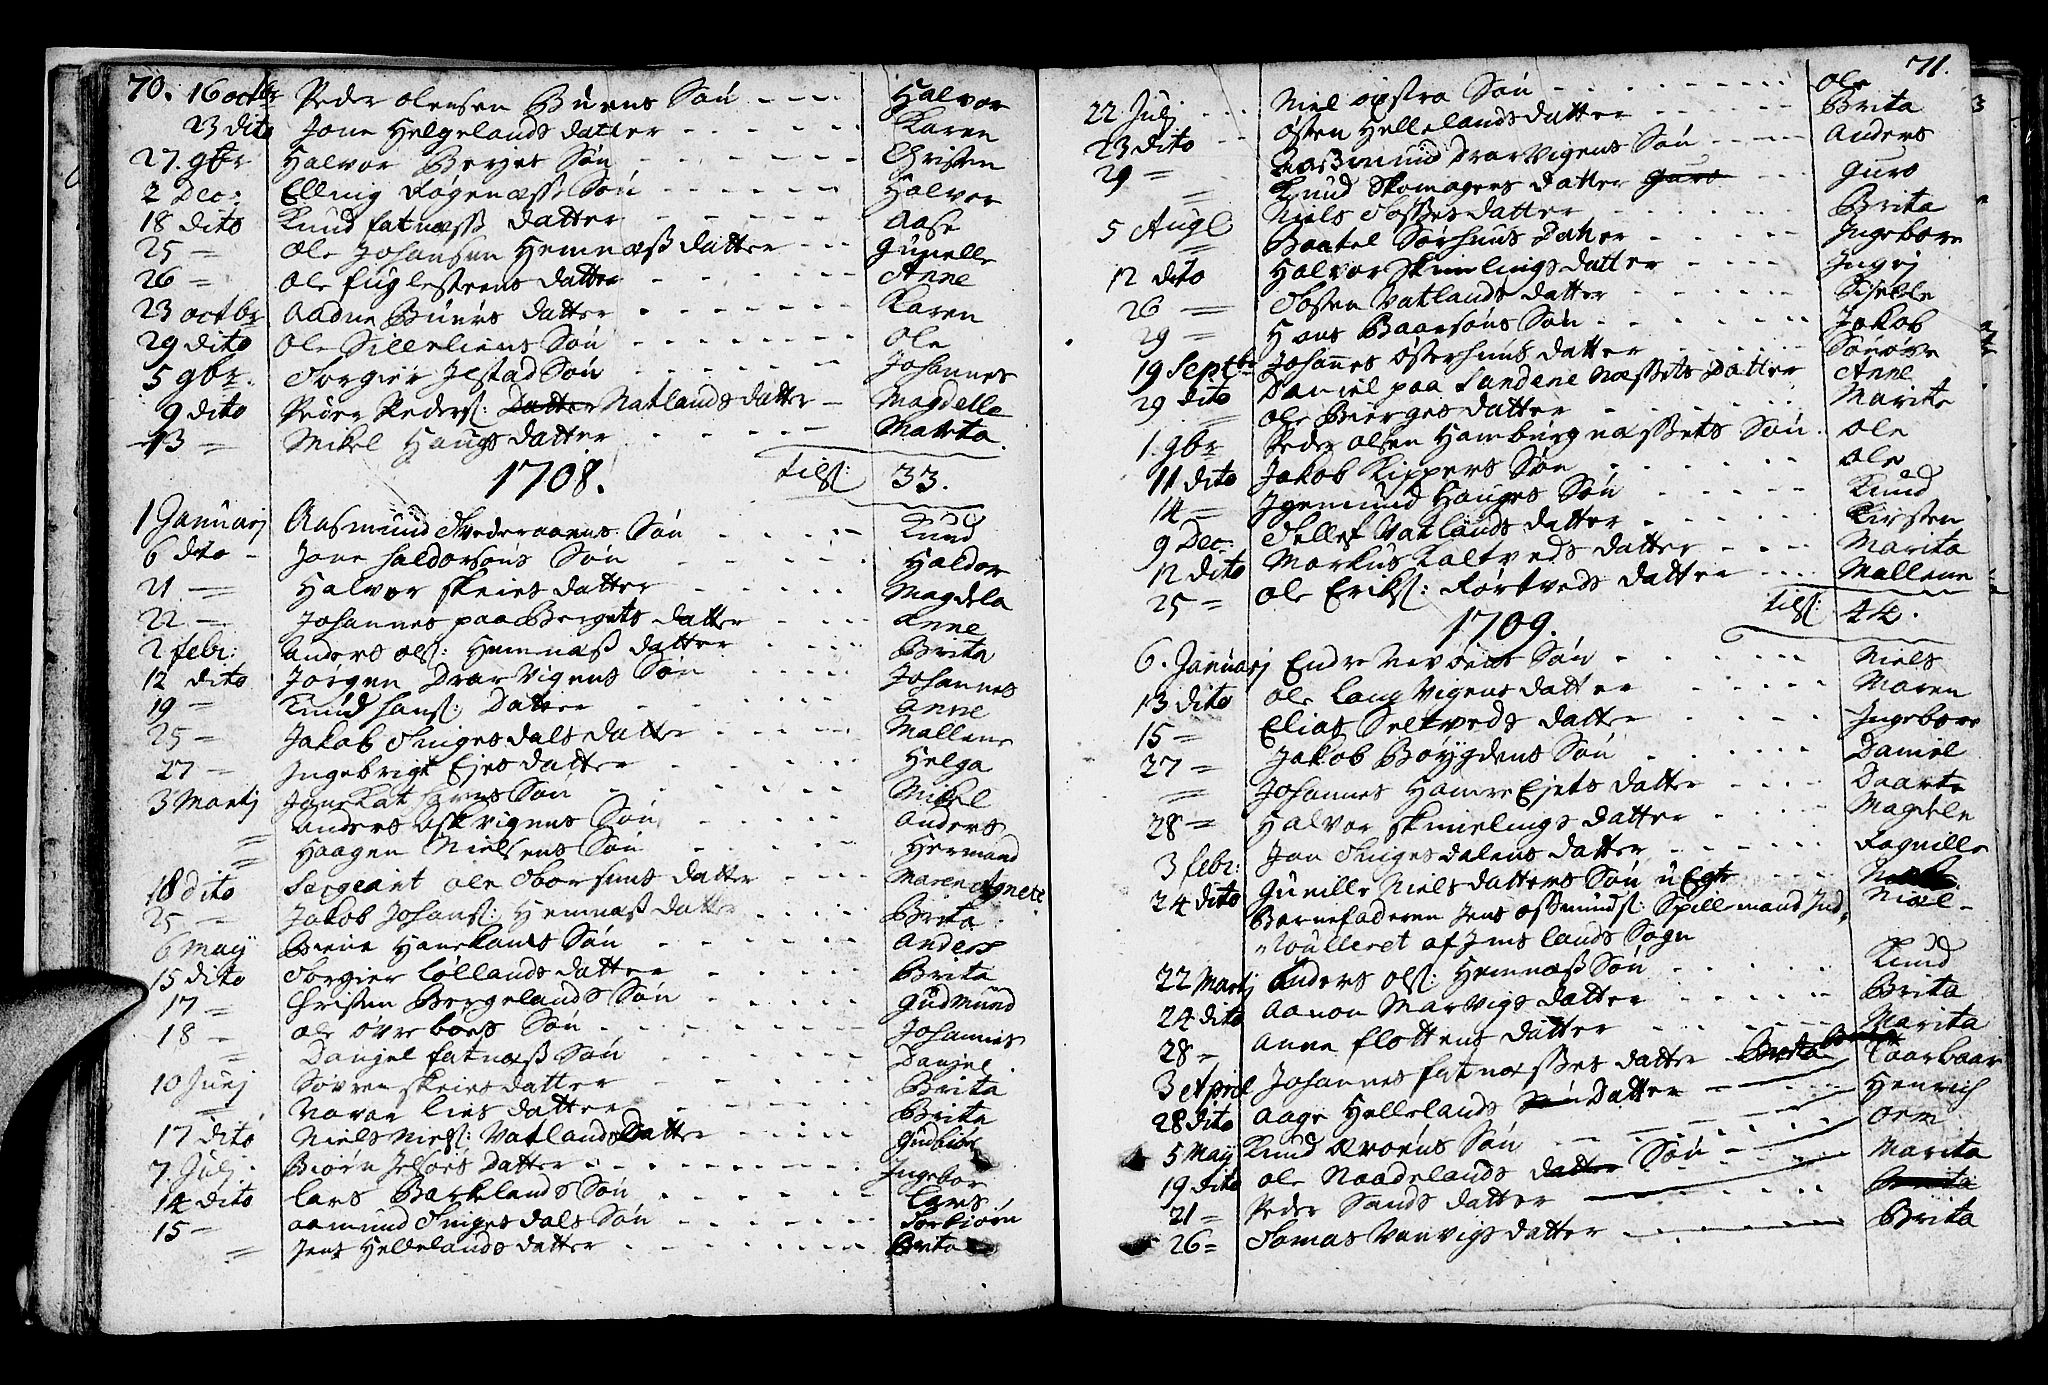 70. 16 octbr Peder olensen Büens Sön - - - - Halvor
23 dito Jone Helgelands datter - - - - - - Karen
27. 9br Halvor Berges Sön - - - - - - Christen
2 Dec: Elling Røgenæss Sön - - - - - - Halvor
18 dito Knud fatnæss datter - - - - - Aase
25 = ole Johansen Hemnæss datter - - - Gunelle
26 = ole fuglesteens datter - - - - - - Anne
23 octbr Aadne Büens datter - - - - - - Karen
29 dito ole Silleliens Sön - - - - - - - ole
5 9br. Torgier Jlstad Sön - - - - - - Johannes
9 dito Peder Peders: Datter Natlands datter - Magdelle
13 = Mikel Haugs datter - - - - - Marta
1708. tils: 33.
1 Januarj Aasmund Svederaaens Sön - - - - Knud
6 dito - Jone haldorsons Sön - - - - - Haldor
21 - = Halvor skeies datter - - - - - Magdela
22 - = Johannes paa Bergets datter - - - - Anne
2 febr: Anders ols: Hemnæss datter - - - - Brita
12 dito Jørgen Drar Vigens Sön - - - - Johannes
19 = Knud hans: Datter - - - - - Anne
25 = Jakob Tingesdals datter - - - - - Mallene
27 = Ingebrigt Ejes datter - - - - - Helga
3 Martj Sön - - - - - - Mikel
= anders askvigens Sön - - - - Anders
= Haagen Nielsens Sön - - - - - Hermand
18 dito Sergeant ole datter - - - Maren Agnete
25 = Jakob Johans: Hemnæss datter - - - - Brita
6 May Sön - - - - - - Anders
15 dito Torgier lollands datter - - - - - Brita
17 = Christen Bergelands Sön - - - - - Gudmund
18 = ole øvrebøes Sön - - - - - - Johannes
= Danjel fatnæss Sön - - - - - Danjel
10 Junj Søvren skeies datter - - - - - - Brita
= lies datter - - - - - - Brita
17 dito Niels Niels: Vatlands datter - - - - Gudbiør
7 Julj Biørn datter - - - - - - - - - Ingebor
14 dito lars Barklands Sön - - - - - - Lars
15 = aamund Tingesdals Sön - - - - - Torbiørn
= Jens Hellelands datter - - - - - - Brita
71.
22 Julj - - - Niel opstra Sön - - - - - - - - ole
23 dito - - østen Hellelands datter - - - - - Brita
29 = Aassmund Drar Vigens Sön - - - - Anders
= Knud Skomagers datter Guro - - - Guro
5 Augl Niels datter - - - - - - Brita
= Baatel Sørhuus Datter - - - - - Ingebore
12 dito Halvor Skimelings datter - - - - Jngrj
26 = Tosten Vatlands datter - - - - - Siselle
29 = Hans Baarsøns Sön - - - - - - Jakob
19 Septbr Johannes østerhuus datter - - - - -
29 dito Daniel paa Landene Næssets Datter Anne
= ole Bierges datter - - - - - - Marite
1. 9br Peder olsen Hamburg næssets Sön . ole
11 dito Jakob Kippers Sön - - - - - ole
14 = Hauges Sön - - - - - Knud
9 Dec: Tellef Vatlands datter - - - - - - Kirsten
12 dito Markus Kaltveds datter - - - - Marita
25 = ole Eriks: Rørtveds datter - - - - Mallene
tils: 44.
1709.
6. Januarj Endre Sön - - - - - - Niels
13 dito ole lang Vigens datter - - - - - Maren
15 = Elias Seltveds datter - - - - - Ingebore
27 = Jakob Bøygdens Sön - - - - - Daniel
= Johannes Hamre Ejets datter - - - - Daarte
28 = Halvor skimelings datter - - - - - Magdele
3 febr: Jon Tingesdalens datter - - - - - - Ragnille
24 dito Gunille Niels datters Sön u Egte - - -
Barnefaderen Jens ossmunds: Spillemand Ind- Niel -
roulleret af Imslands Sogn
22 Martj Anders ols: Hemnæss Sön - - - - - Knud
24 dito Aanon Mar Vigs datter - - - - - - Brita
28 = Anne flottens datter - - - - - - Marita
3 April Johannes fatnæsses datter Brita
28 dito aage Hellelands Sön Datter - - - - Taarbaar
5 May Knud Sön - - - - - - - Henrich
19 dito ole Naadelands datter Sön - - - - orm
21 = Peder Sands datter - - - - - - Marita
26 = Tomas Vanvigs datter - - - - - Brita